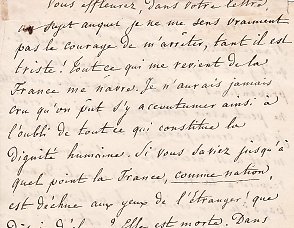 Vous effleurez dans votre lettre,
au sept auquel je ne me sens vraiment
pas le courage de m'arrêter, tant il est
triste! Tout ce qui me revient de la
France me navre. Je n'aurais jamais
cru qu'on pût s'y accoutumer ainsi à
l'oubli de tout ce qui constitue la
dignité humaine. Si vous saviez jusqu'à
quel point la France, comme nation,
est déchue aux yeux de l'étranger! que
Elle est morte. Dans